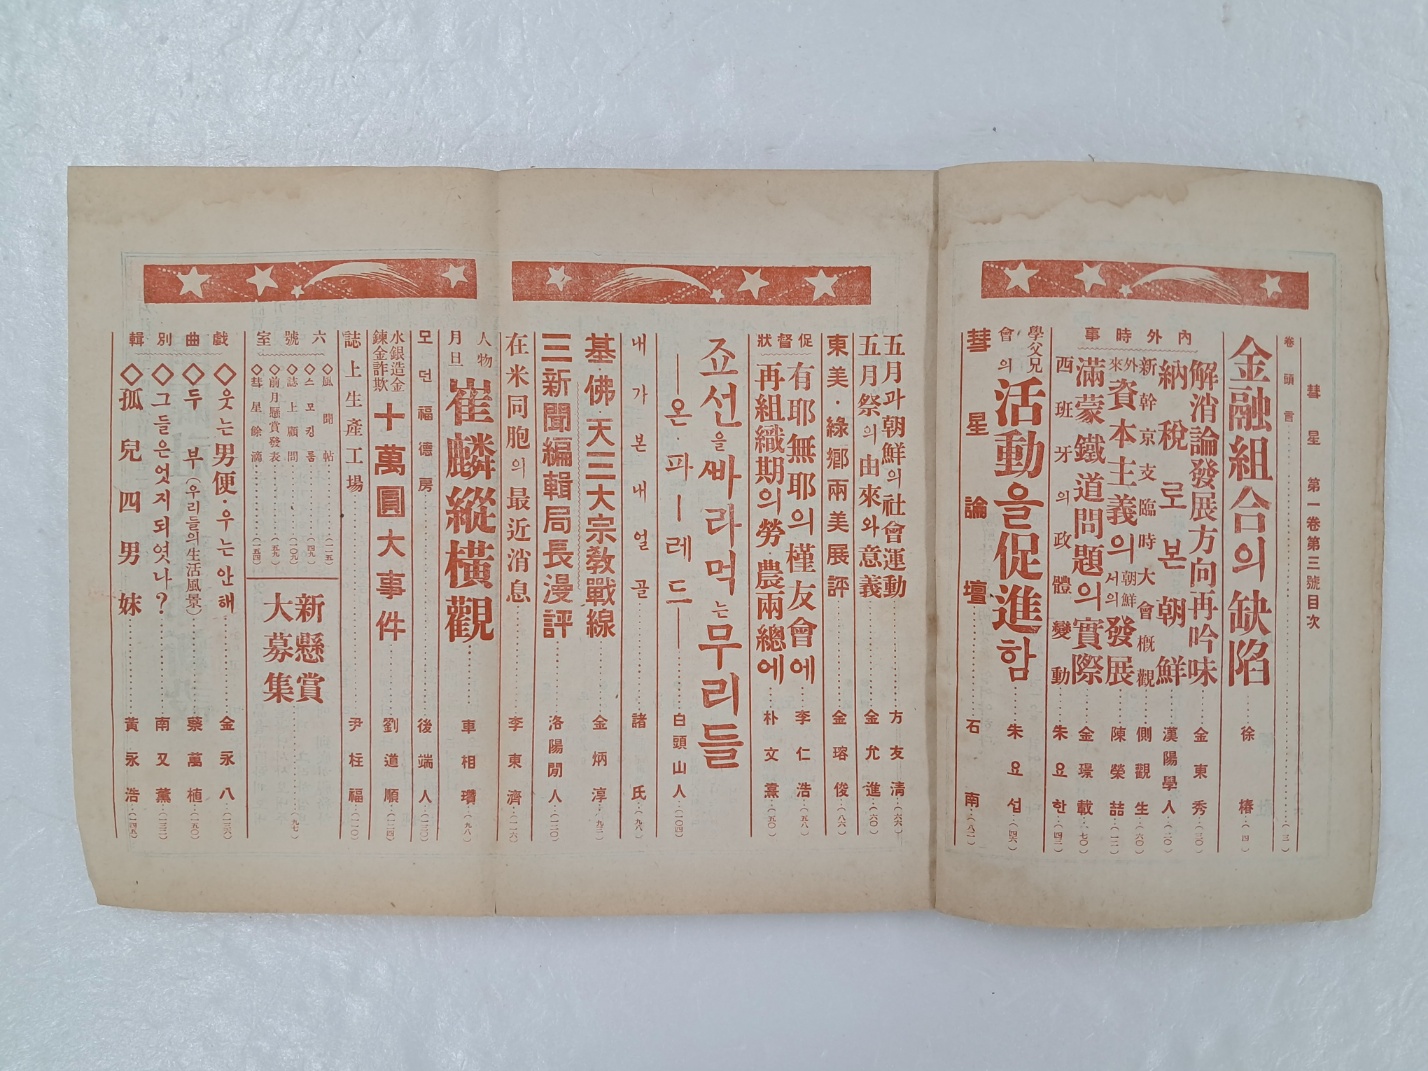 彗星 第一卷第三號目次
卷頭言……(三)
金融組合의缺陷……徐椿(四)
內外時事
解消論發展方向再吟味……金東秀(三〇)
納稅로본朝鮮……漢陽學人(二〇)
新幹京支臨時大會槪觀……側觀生(六〇)
外來資本主義의朝鮮서의發展……陳榮喆(一二)
滿蒙鐵道問題의實際……金璟載(七〇)
西班牙의政體變動……朱요한(四二)
學父兄會의活動을促進함……朱요섭(四六)
彗星論壇……石南(八二)
五月과朝鮮의社會運動……方友淸(六六)
五月祭의由來와意義……金允進(六〇)
東美·綠鄕兩美展評……金瑢俊(八六)
促督狀
有耶無耶의槿友會에……李仁浩(五八)
再組織期의勞·農兩總에……朴文熹(五〇)
죠선을싸라먹는무리들
—온·파—레드—……白頭山人(一〇四)
내가본내얼골……諸氏(九八)
基·佛·天三大宗敎戰線……金炳淳(九二)
三新聞編輯局長漫評……洛陽閒人(一二〇)
在米同胞의最近消息……李東濟(一一六)
人物月旦
崔麟縱橫觀……車相瓚(九八)
모던福德房……後端人(一三〇)
水銀造金鍊金詐欺
十萬圓大事件……劉道順(一二四)
誌上生產工場……尹柱福(一一〇)
六號室
◇風聞帖……(一一五)
◇스모킹룸……(四九)
◇誌上顧問……(一〇九)
◇前月懸賞發表……(五九)
◇彗星餘滴……(一五四)
新懸賞大募集……(九七)
戱曲別輯
◇웃는男便·우는안해……金永八(一三六)
◇두부부(우리들의生活風景)……蔡萬植(一五〇)
◇그들은엇지되엿나?……南又薰(一三二)
◇孤兒四男妹……黃永浩(一四五)